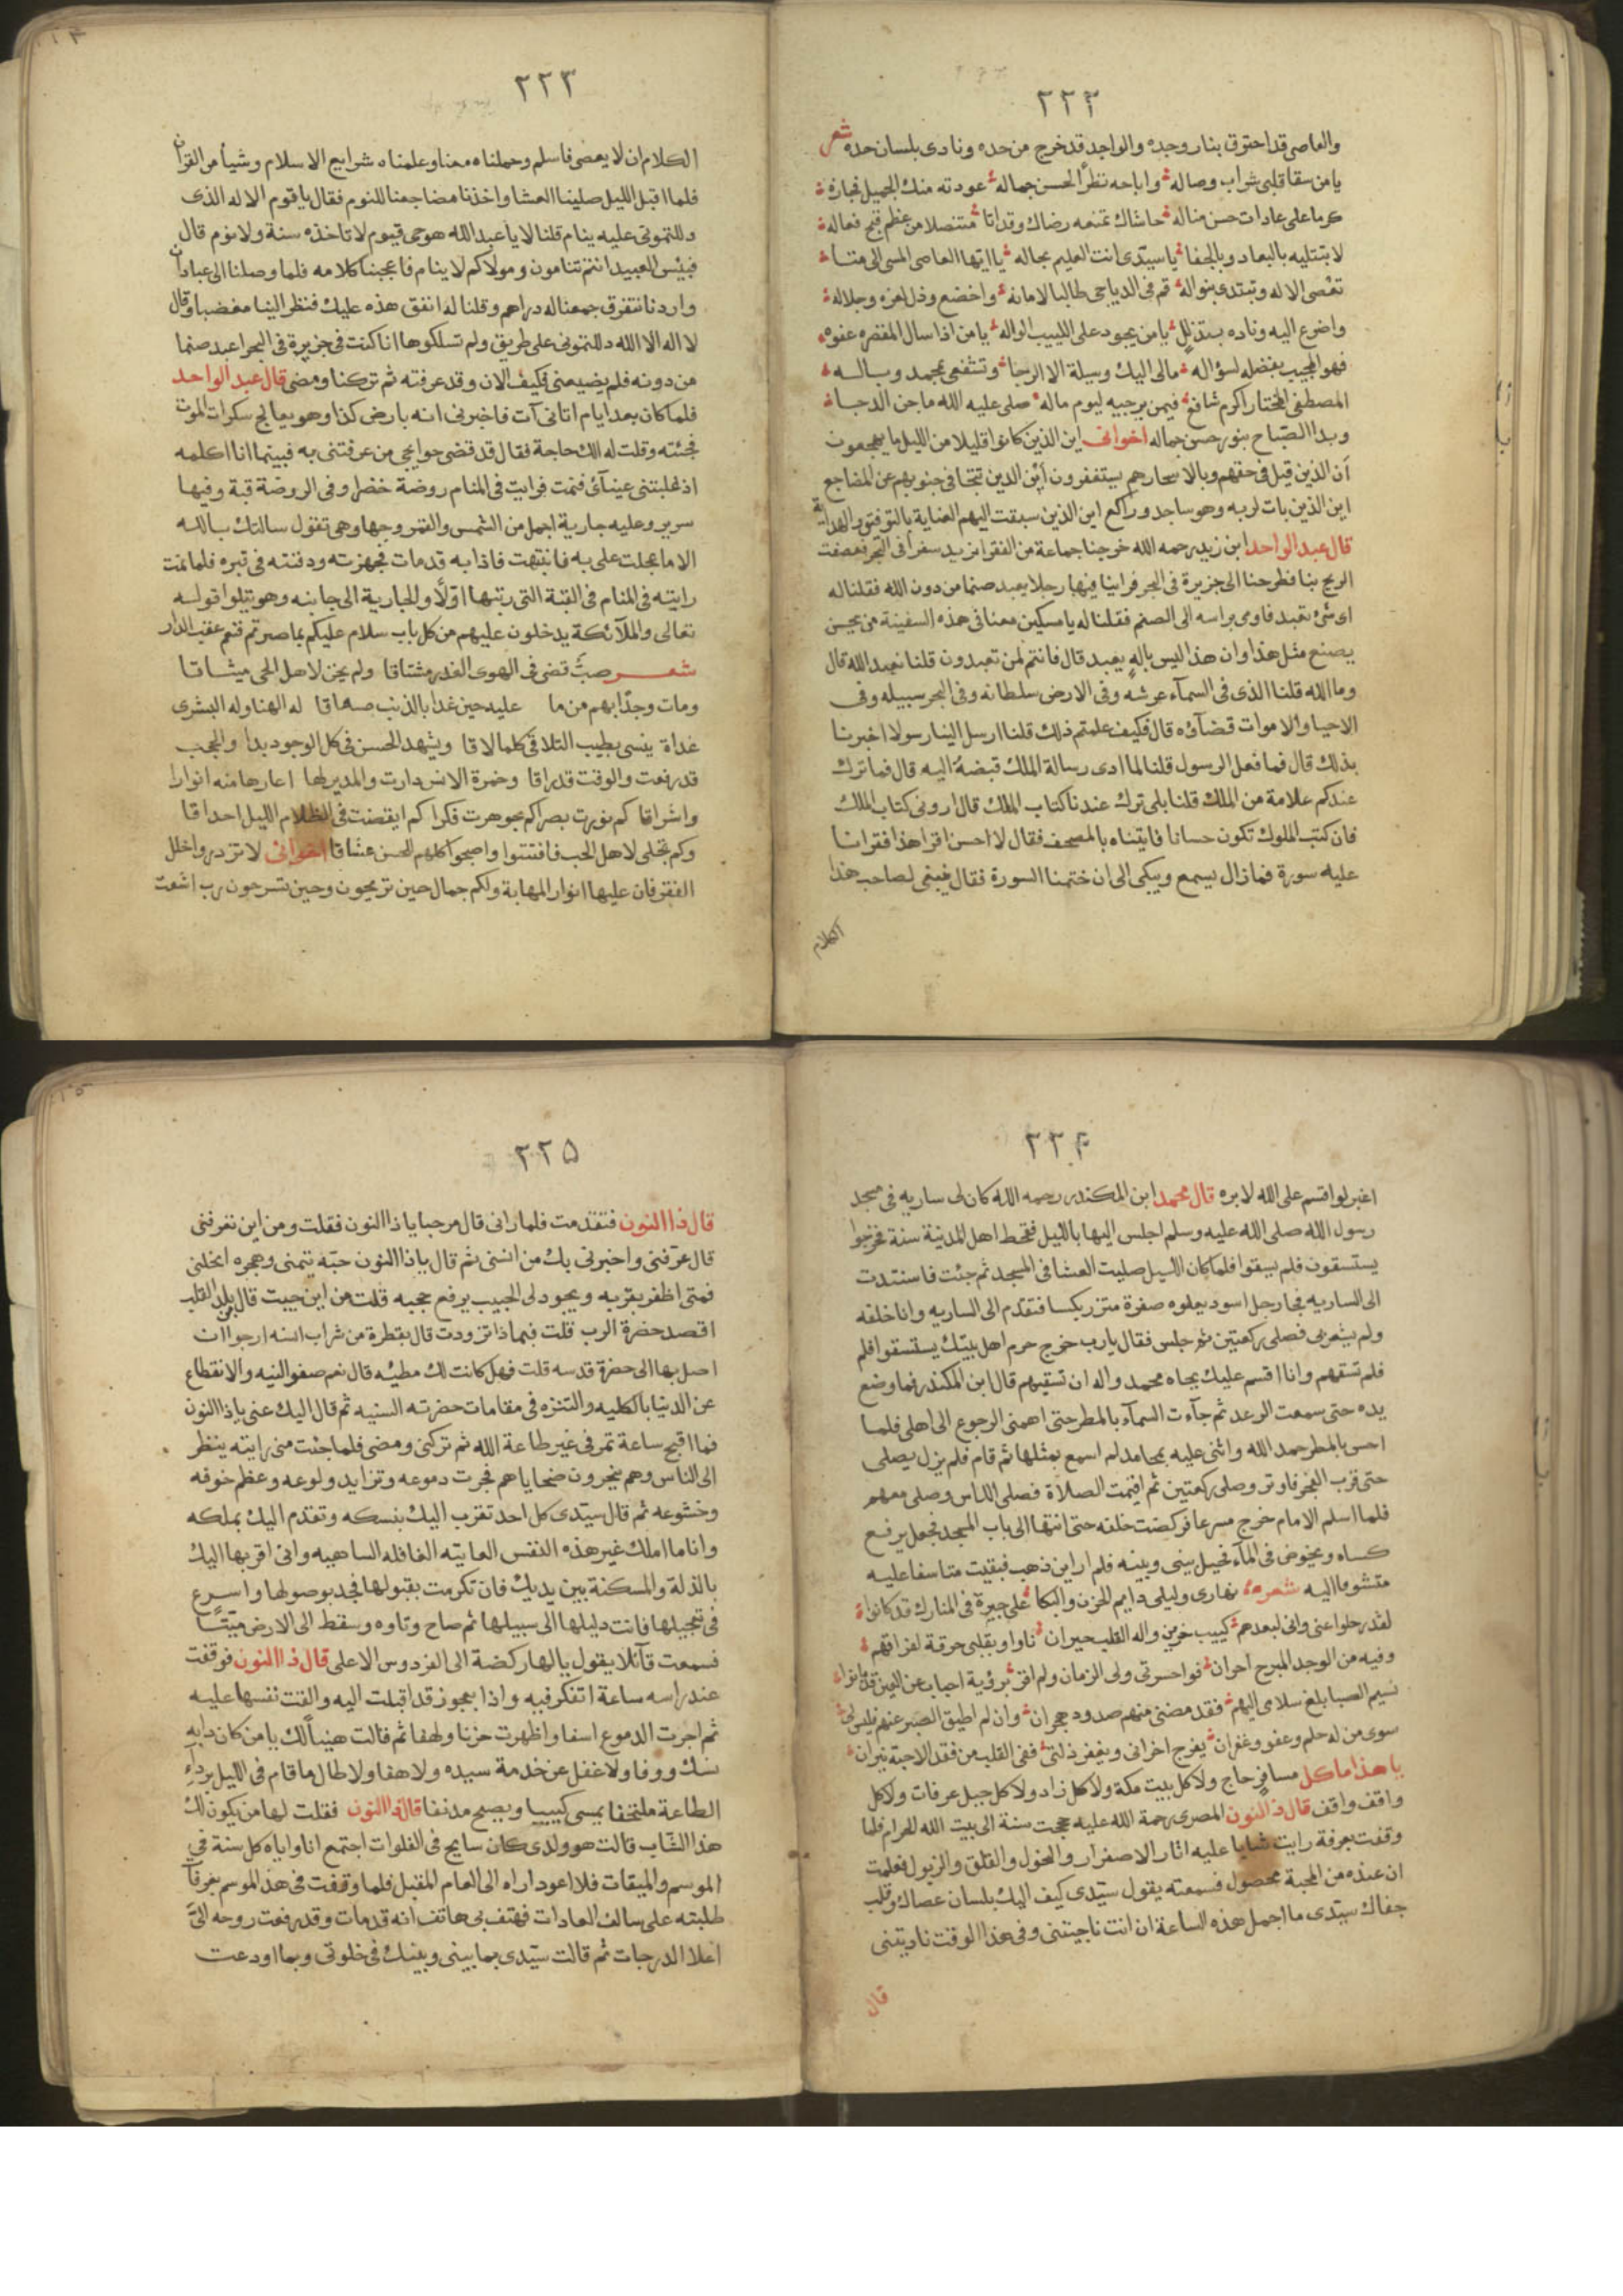 ٢٢٢
والعاصي قد احترق بنار وجده والواجد قد خرج من حده ونادى بلسان حده شعر
يا من سقا قلبي شراب وصاله واباحه نظرا لحسن جماله عودته منك الجميل فجازه
كرما على عادات حسن مناله حاشاك تمنعه رضاك وقد اتا متنصلا من عظم قبح فعاله
لا تبتليه بالبعاد وبالجفا يا سيدى انت العليم بحاله يا ايها العاصى المسى الى متا
تعصى الاله وتبتدى بنواله قم فى الدياجى طالبا لامانه واخضع وذل لعزه وجلاله
واضرع اليه وناده بتذلل يا من يجود على اللبيب الواله يا من اذا سال المقصر عفوه
فهو المجيب بفضله لسؤاله مالى اليك وسيلة الا الرجا وتشفعى بمحمد وباله
المصطفى المختار اكرم شافع فيمن يرجيه ليوم ماله صلى عليه الله ما جن الدجا
وبدا الصباح بنور حسن جماله اخوانى اين الذين كانوا قليلا من الليل ما يهجعون
اين الذين قيل فى حقهم وبالاسحار هم يستغفرون اين الذين تتجافى جنوبهم عن المضاجع
اين الذين بات لربه وهو ساجد وراكع اين الذين سبقت اليهم العناية بالتوفيق والهداية
قال عبد الواحد ابن زيد رحمه الله خرجنا جماعة من الفقرا نريد سفرا فى البحر فعصفت
الريح بنا فطرحنا الى جزيرة فى البحر فراينا فيها رجلا يعبد صنما من دون الله فقلنا له
اى شئ تعبد فاومى براسه الى الصنم فقلنا له يا مسكين معنا فى هذه السفينة من يحسن
يصنع مثل هذا وان هذا ليس باله يعبد قال فانتم لمن تعبدون قلنا نعبد الله قال
وما الله قلنا الذى فى السمآء عرشه وفى الارض سلطانه وفى البحر سبيله وفى
الاحيا والاموات قضآؤه قال فكيف علمتم ذلك قلنا ارسل الينا رسولا اخبرنا
بذلك قال فما فعل الرسول قلنا لما ادى رسالة الملك قبضه اليه قال فما ترك
عندكم علامة من الملك قلنا بلى ترك عندنا كتاب الملك قال ارونى كتاب الملك
فان كتب الملوك تكون حسانا فاتيناه بالمصحف فقال لا احسن اقرا هذا فقرانا
عليه سورة فما زال يسمع ويبكى الى ان ختمنا السورة فقال ينبغى لصاحب هذا
الكلام
٢٢٣
الكلام ان لا يعصى فاسلم وحملناه معنا وعلمناه شرايع الاسلام وشيأ من القران
فلما اقبل الليل صلينا العشا واخذنا مضاجعنا للنوم فقال يا قوم الاله الذى
دللتمونى عليه ينام قلنا لا يا عبد الله هو حى قيوم لا تاخذه سنة ولا نوم قال
فبئس العبيد انتم تنامون ومولاكم لا ينام فاعجبنا كلامه فلما وصلنا الى عبادان
واردنا نتفرق جمعنا له دراهم وقلنا له انفق هذه عليك فنظر الينا مغضبا وقال
لا اله الا الله دللتمونى على طريق ولم تسلكوها انا كنت فى جزيرة فى البحر اعبد صنما
من دونه فلم يضيعنى فكيف الان وقد عرفته ثم تركنا ومضى قال عبد الواحد
فلما كان بعد ايام اتانى آت فاخبرنى انه بارض كذا وهو يعالج سكرات الموت
فجئته وقلت له الك حاجة فقال قد قضى حوايجى من عرفتنى به فبينما انا اكلمه
اذ غلبتنى عيناى فنمت فرايت فى المنام روضة خضرا وفى الروضة قبة وفيها
سرير وعليه جارية اجمل من الشمس والقمر وجهها وهى تقول سالتك بالله
الا ما عجلت على به فانتبهت فاذا به قد مات فجهزته ودفنته فى قبره فلما نمت
رايته فى المنام فى القبة التى رتبها اوّلاً والجارية الى جانبه وهو يتلوا قوله
تعالى والملآئكة يدخلون عليهم من كل باب سلام عليكم بما صبرتم فنعم عقبى الدار
شعر صبٌّ قضى فى الهوى الغدر مشتاقا ولم يخن لاهل الحى ميثاقا
ومات وجدًا بهم من ما عليه حين غدا بالذنب صهاقا له الهنا وله البشرى
غداة ينسى بطيب التلاقى كلما لاقا ويشهد الحسن فى كل الوجود بدا والحجب
قد رفعت والوقت قد راقا وخمرة الانس دارت والمدير لها اعارها منه انوارا
واشراقا كم نورت بصراكم جوهرت فكرا كم ايقضت فى الظلام الليل احداقا
وكم تجلى لاهل الحب فافتتنوا واصبحوا كلهم للحسن عشاقا اخوانى لا تزدروا خلل
الفقر فان عليها انوار المهابة ولكم جمال حين تريحون وحين تسرحون رب اشعث
٢٢٤
اغبر لو اقسم على الله لابره قال محمد ابن المكندر رحمه الله كان لى ساريه فى مسجد
رسول الله صلى الله عليه وسلم اجلس اليها بالليل فقحط اهل المدينة سنة فخرجوا
يستسقون فلم يسقوا فلما كان الليل صليت العشا فى المسجد ثم جئت فاستندت
الى الساريه فجا رجل اسود يعلوه صفرة متزر بكسا فتقدم الى الساريه وانا خلفه
ولم يشعر بى فصلى ركعتين ثم جلس فقال يا رب خرج حرم اهل بيتك يستسقوا فلم
فلم تسقهم وانا اقسم عليك بجاه محمد واله ان تسقيهم قال ابن المكندر فما وضع
يده حتى سمعت الرعد ثم جآءت السمآء بالمطر حتى اهمنى الرجوع الى اهلى فلما
احس بالمطر حمد الله واثنى عليه بمحامد لم اسمع بمثلها ثم قام فلم يزل يصلى
حتى قرب الفجر فاوتر وصلى ركعتين ثم اقيمت الصلاة فصلى الناس وصلى معهم
فلما اسلم الامام خرج مسرعا فركضت خلفه حتى انتها الى باب المسجد فجعل يرفع
كساه ويخوض فى المآء فحيل بينى وبينه فلم ار اين ذهب فبقيت متاسفا عليه
متشوقا اليه شعره نهارى وليلى دايم الحزن والبكا على جيرة فى المنازل قد كانوا
لقد رحلوا عنى وانى لبعدهم كئيب حزين واله القلب حيران ناوا وبقلبى حرقة لفراقهم
وفيه من الوجد المبرح احران فواحسرتى ولى الزمان ولم افز برؤية احباب عن العين قد بانوا
نسيم الصبا بلغ سلامى اليهم فقد مضنى منهم صدود وهجران وان لم اطيق الصبر عنهم فليس لى
سوى من له حلم وعفو وغفران يفرج احزانى ويغفر ذلتى ففى القلب من فقد الاحبة نيران
يا هذا ما كل مسافر حاج ولا كل بيت مكة ولا كل زاد ولا كل جبل عرفات ولا كل
واقف واقف قال ذا النون المصرى رحمة الله عليه حججت سنة الى بيت الله الحرام فلما
وقفت بعرفة رايت شابا عليه اثار الاصفرار والنحول والقلق والزبول فعلمت
ان عنده من المحبة محصول فسمعته يقول سيدى كيف اليك بلسان عصاك وقلب
جفاك سيدى ما اجمل هذه الساعة ان انت ناجيتنى وفى هذا الوقت ناديتنى
قال
٢٢٥
قال ذا النون فتقدمت فلما رانى قال مرحبا يا ذا النون فقلت ومن اين تعرفنى
قال عرّفنى واخبرنى بك من انسنى ثم قال يا ذا النون حبّه تيمنى وهجره انحلنى
فمتى اظفر بقربه ويجود لى الحبيب برفع حجبه قلت من اين جيت قال من بلد القلب
اقصد حضرة الرب قلت فبماذا تزودت قال بقطرة من شراب انسه ارجوا ان
اصل بها الى حضرة قدسه قلت فهل كانت لك مطيه قال نعم صفو النيه والانقطاع
عن الدنيا بالكليه والتنزه فى مقامات حضرته السنيه ثم قال اليك عنى يا ذا النون
فما اقبح ساعة تمر فى غير طاعة الله ثم تركنى ومضى فلما جئت منى رايته ينظر
الى الناس وهم ينحرون ضحاياهم فجرت دموعه وتزايد ولوعه وعظم خوفه
وخشوعه ثم قال سيدى كل احد تقرب اليك بنسكه وتقدم اليك بملكه
وانا ما املك غير هذه النفس العاتيه الغافله الساهيه وانى اقربها اليك
بالذلة والمسكنة بين يديك فان تكرمت بقبولها فجد بوصولها واسرع
فى تعجيلها فانت دليلها الى سبيلها ثم صاح وتاوه وسقط الى الارض ميّتًا
فسمعت قآئلا يقول يا لها ركضة الى الفردوس الاعلى قال ذا النون فوقفت
عند راسه ساعة اتفكر فيه واذا بعجوز قد اقبلت اليه والقت نفسها عليه
ثم اجرت الدموع اسفا واظهرت حزنا ولهفا ثم قالت هنيأ لك يا من كان دابه
نسك ووفا ولا غفل عن خدمة سيده ولا هفا ولا طال ما قام فى الليل برداء
الطاعة ملتحفا يمسى كييبا ويصبح مدنفا قال ذا النون فقلت لها من يكون لك
هذا الشاب قالت هو ولدى كان سايح فى الفلوات اجتمع انا واياه كل سنة فى
الموسم والميقات فلا اعود اراه الى العام المقبل فلما وقفت فى هذا الموسم بعرفآ
طلبته على سالف العادات فهتف بى هاتف انه قد مات وقد رفعت روحه الىّ
اعلا الدرجات ثم قالت سيدى بما بينى وبينك فى خلوتى وبما اودعت